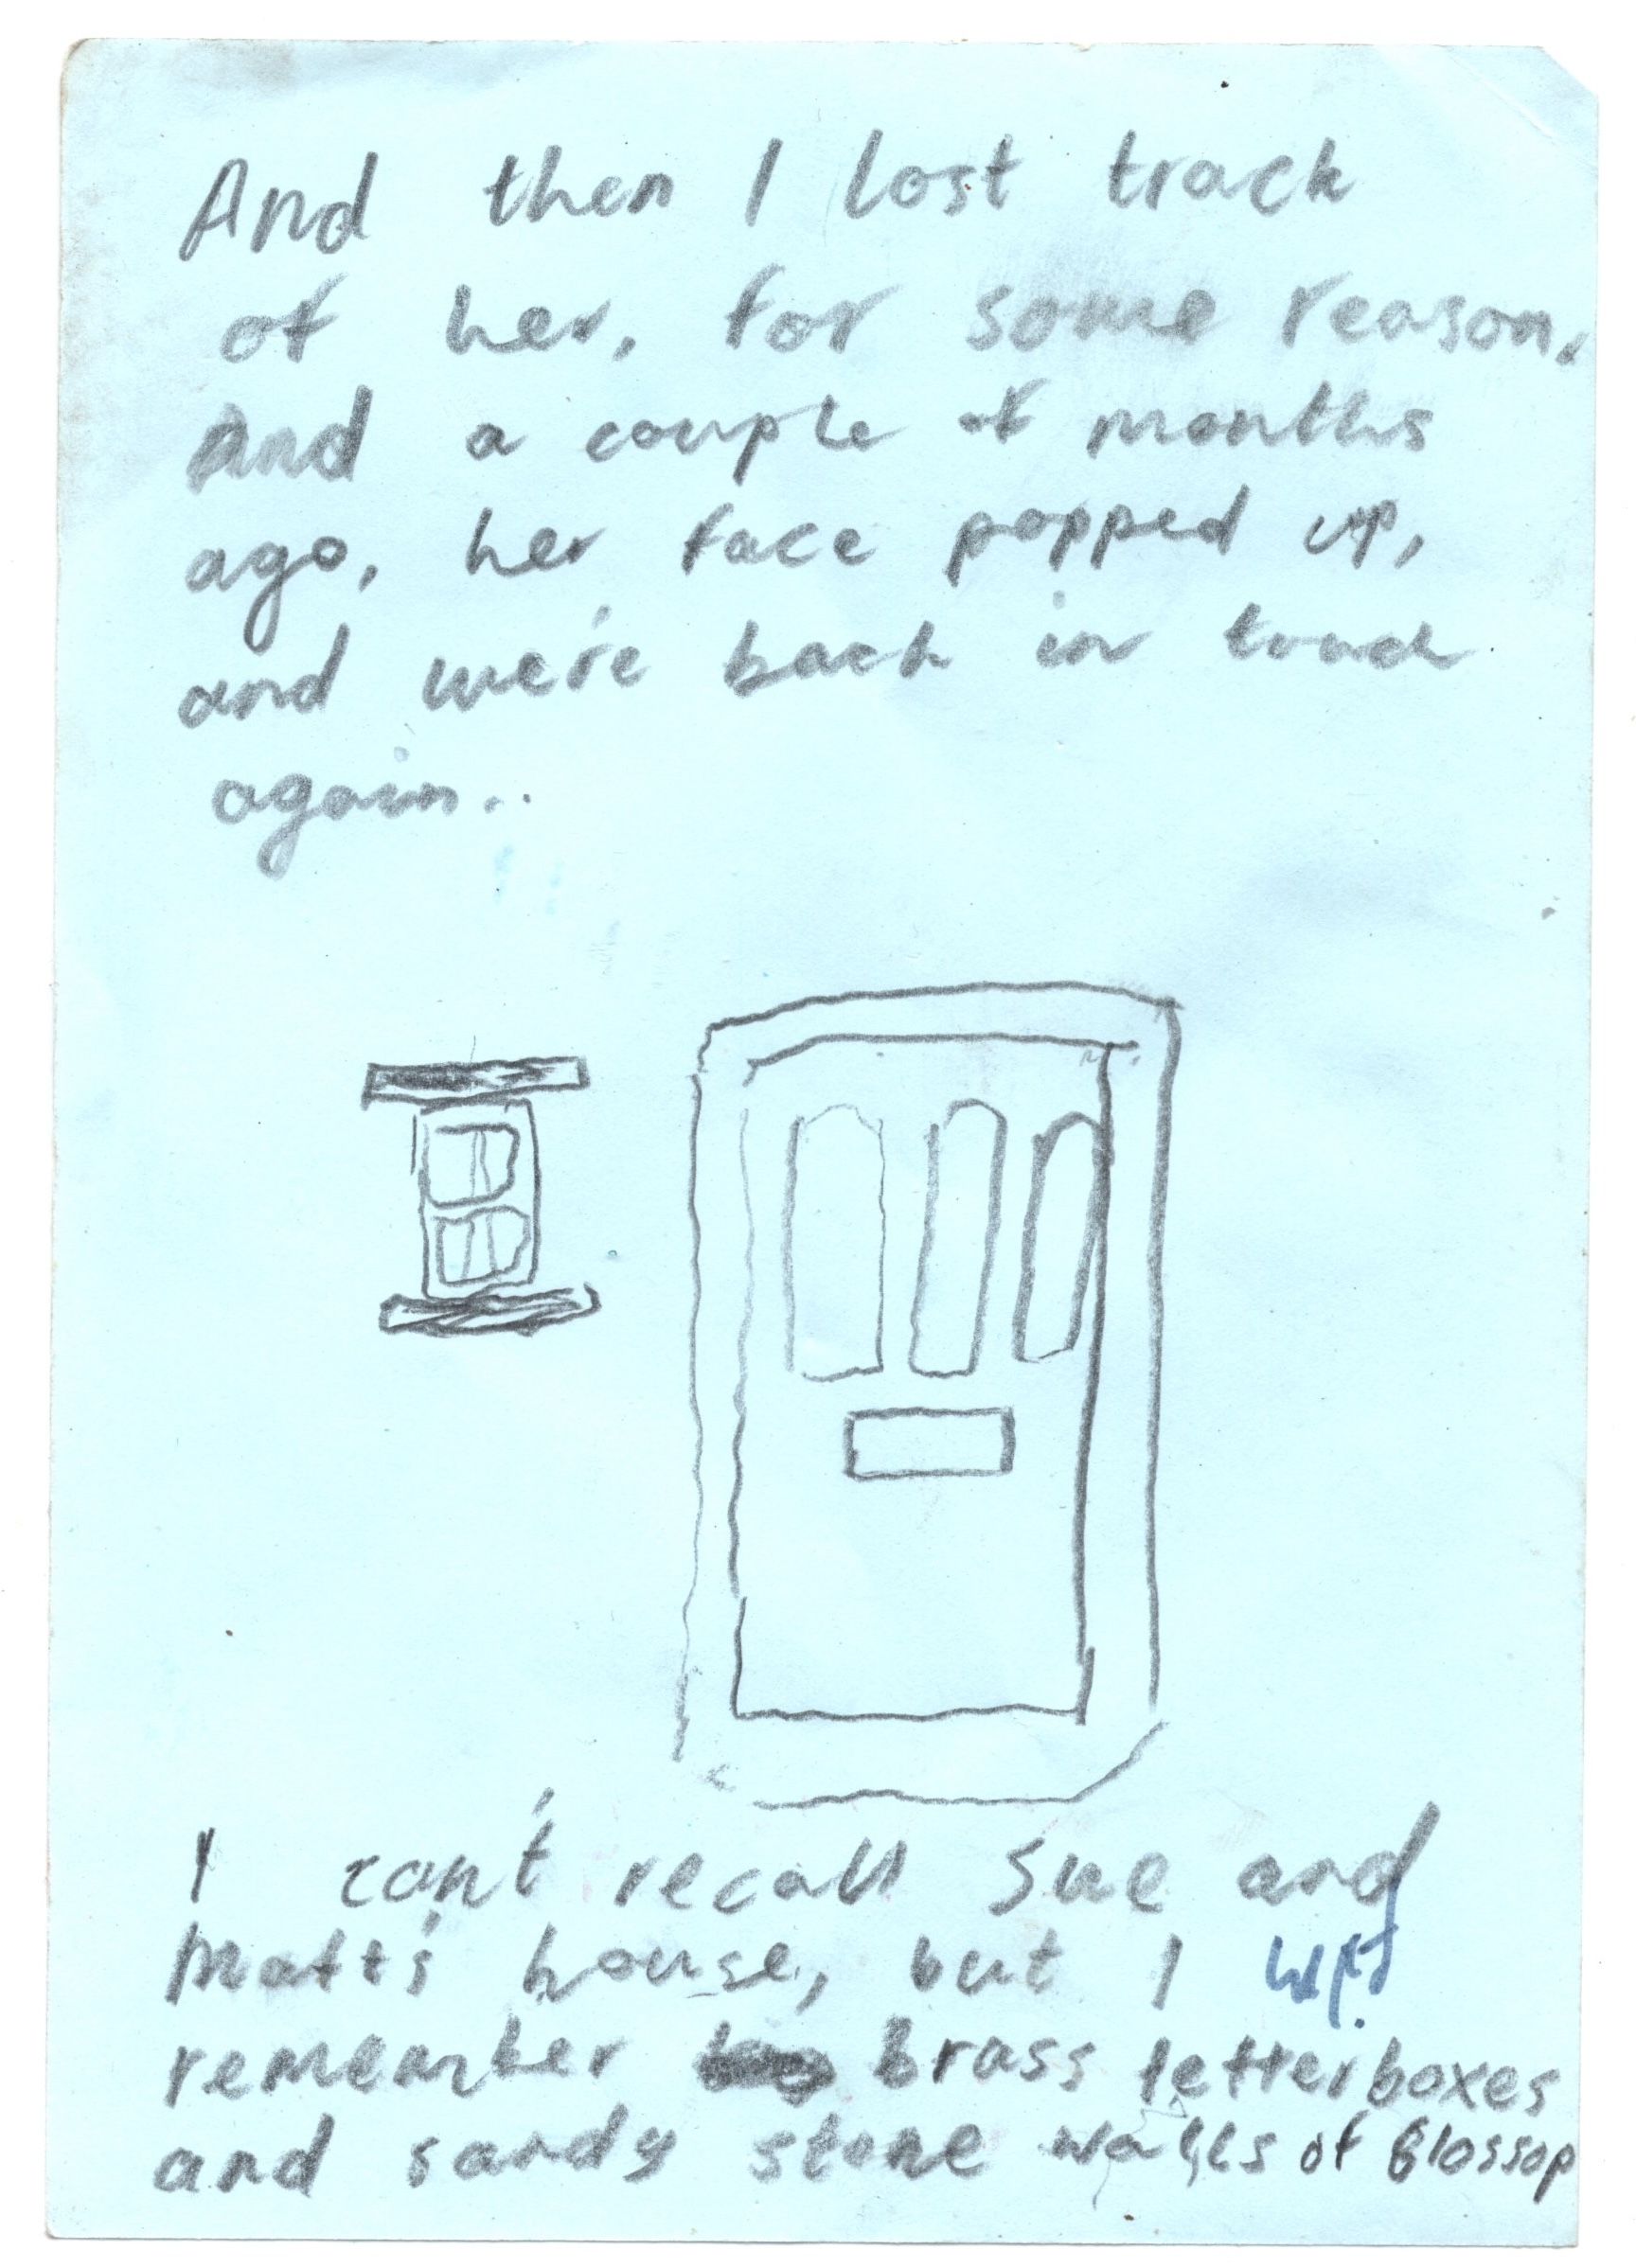 And then I lost track
of her, for some reason.
And a couple of months
ago, her face popped up,
and we're back in touch
again.
I can't recall Sue and
Matt's house, but I
remember brass letterboxes
and sandy stone walls of Glossop